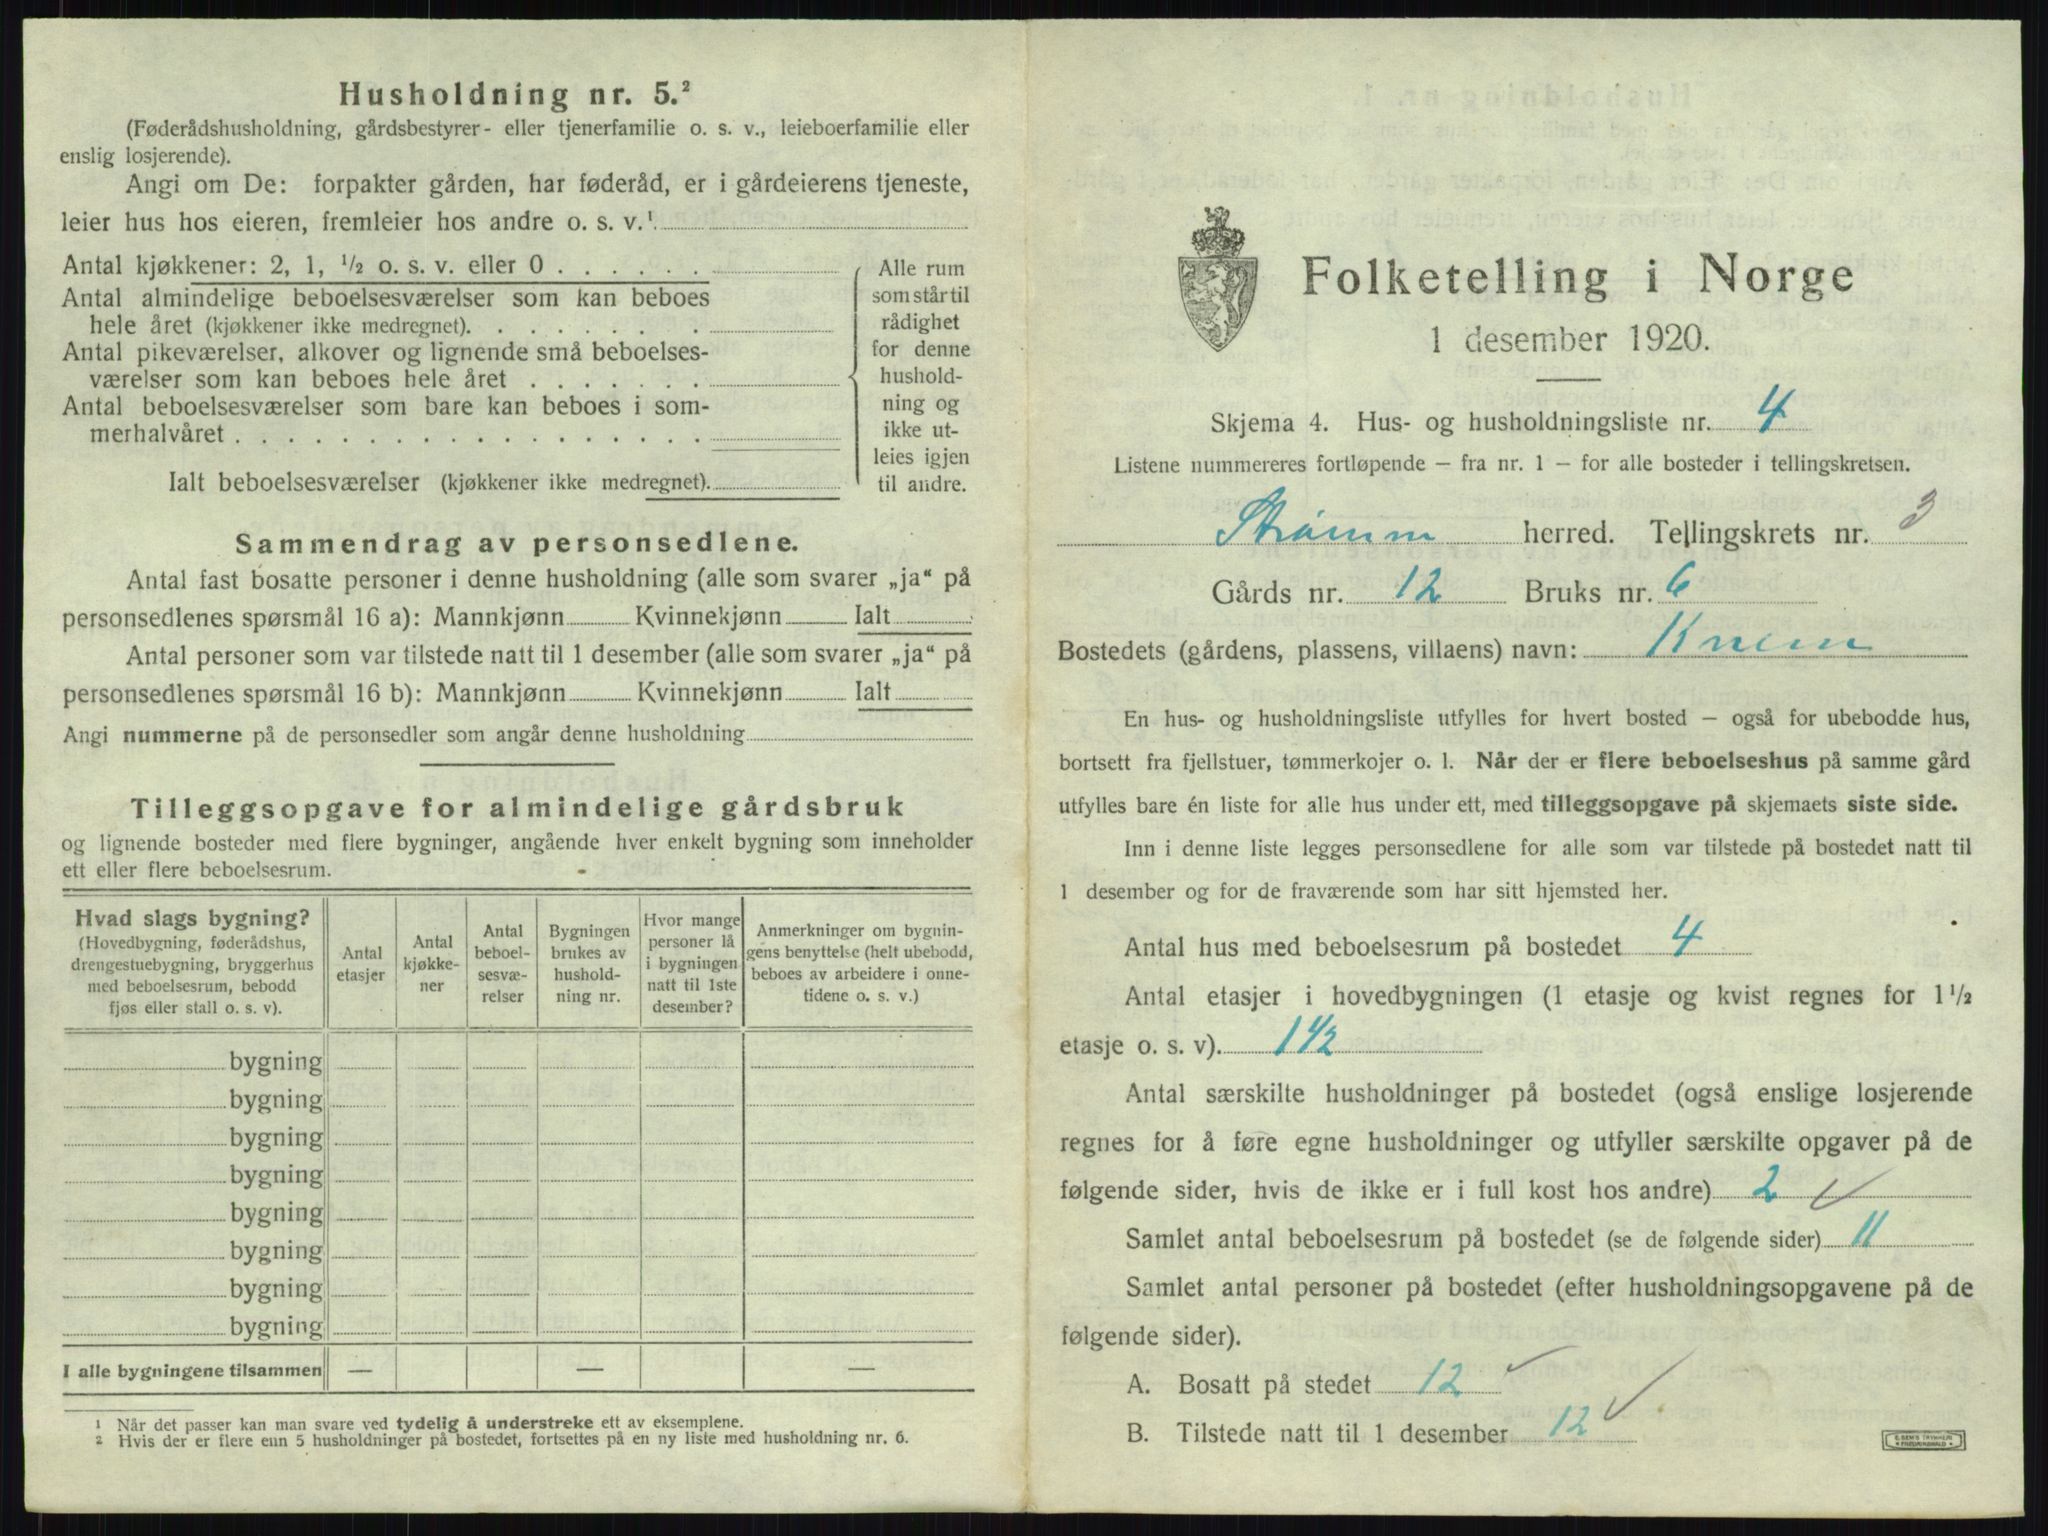 Husholdning nr. 5.²
(Føderådshusholdning, gårdsbestyrer- eller tjenerfamilie o. s. v., leieboerfamilie eller
enslig losjerende).
Angi om De: forpakter gården, har føderåd, er i gårdeierens tjeneste,
leier hus hos eieren, fremleier hos andre o. s. v.¹
Antal kjøkkener: 2, 1, ½ o. s. v. eller 0 . . . . . .
Antal almindelige beboelsesværelser som kan beboes
hele året (kjøkkener ikke medregnet). . . . . . . . .
Antal pikeværelser, alkover og lignende små beboelses-
værelser som kan beboes hele året . . . . . . .
Antal beboelsesværelser som bare kan beboes i som-
merhalvåret . . . . . . . . . . . . . . . . . .
Ialt beboelsesværelser (kjøkkener ikke medregnet).
Alle rum
som står til
rådighet
for denne
hushold-
ning og
ikke ut-
leies igjen
til andre.
Sammendrag av personsedlene.
Antal fast bosatte personer i denne husholdning (alle som svarer „ja“ på
personsedlenes spørsmål 16 a): Mannkjønn Kvinnekjønn Ialt
Antal personer som var tilstede natt til 1 desember (alle som svarer „ja“ på
personsedlenes spørsmål 16 b): Mannkjønn Kvinnekjønn Ialt
Angi nummerne på de personsedler som angår denne husholdning
Tilleggsopgave for almindelige gårdsbruk
og lignende bosteder med flere bygninger, angående hver enkelt bygning som inneholder
ett eller flere beboelsesrum.
Hvad slags bygning?
(Hovedbygning, føderådshus,
drengestuebygning, bryggerhus
med beboelsesrum, bebodd
fjøs eller stall o. s. v).
Antal
etasjer
Antal
kjøkke-
ner
Antal
beboel-
sesvæ-
relser
Bygningen
brukes av
hushold-
ning nr.
Hvor mange
personer lå
i bygningen
natt til 1ste
desember?
Anmerkninger om bygnin-
gens benyttelse (helt ubebodd,
beboes av arbeidere i onne-
tidene o. s. v.)
bygning
bygning
bygning
bygning
bygning
bygning
bygning
bygning
I alle bygningene tilsammen — — —
¹ Når det passer kan man svare ved tydelig å understreke ett av eksemplene.
² Hvis der er flere enn 5 husholdninger på bostedet, fortsettes på en ny liste med husholdning nr. 6.
Folketelling i Norge
1 desember 1920.
Skjema 4. Hus- og husholdningsliste nr. 4
Listene nummereres fortløpende – fra nr. 1 – for alle bosteder i tellingskretsen.
Strømm herred. Tellingskrets nr. 3
Gårds nr. 12 Bruks nr. 6
Bostedets (gårdens, plassens, villaens) navn: Knem
En hus- og husholdningsliste utfylles for hvert bosted – også for ubebodde hus,
bortsett fra fjellstuer, tømmerkojer o. l. Når der er flere beboelseshus på samme gård
utfylles bare én liste for alle hus under ett, med tilleggsopgave på skjemaets siste side.
Inn i denne liste legges personsedlene for alle som var tilstede på bostedet natt til
1 desember og for de fraværende som har sitt hjemsted her.
Antal hus med beboelsesrum på bostedet 4
Antal etasjer i hovedbygningen (1 etasje og kvist regnes for 1½
etasje o. s. v). 1 ½
Antal særskilte husholdninger på bostedet (også enslige losjerende
regnes for å føre egne husholdninger og utfyller særskilte opgaver på de
følgende sider, hvis de ikke er i full kost hos andre) 2
Samlet antal beboelsesrum på bostedet (se de følgende sider) 11
Samlet antal personer på bostedet (efter husholdningsopgavene på de
følgende sider).
A. Bosatt på stedet 12
B. Tilstede natt til 1 desember 12